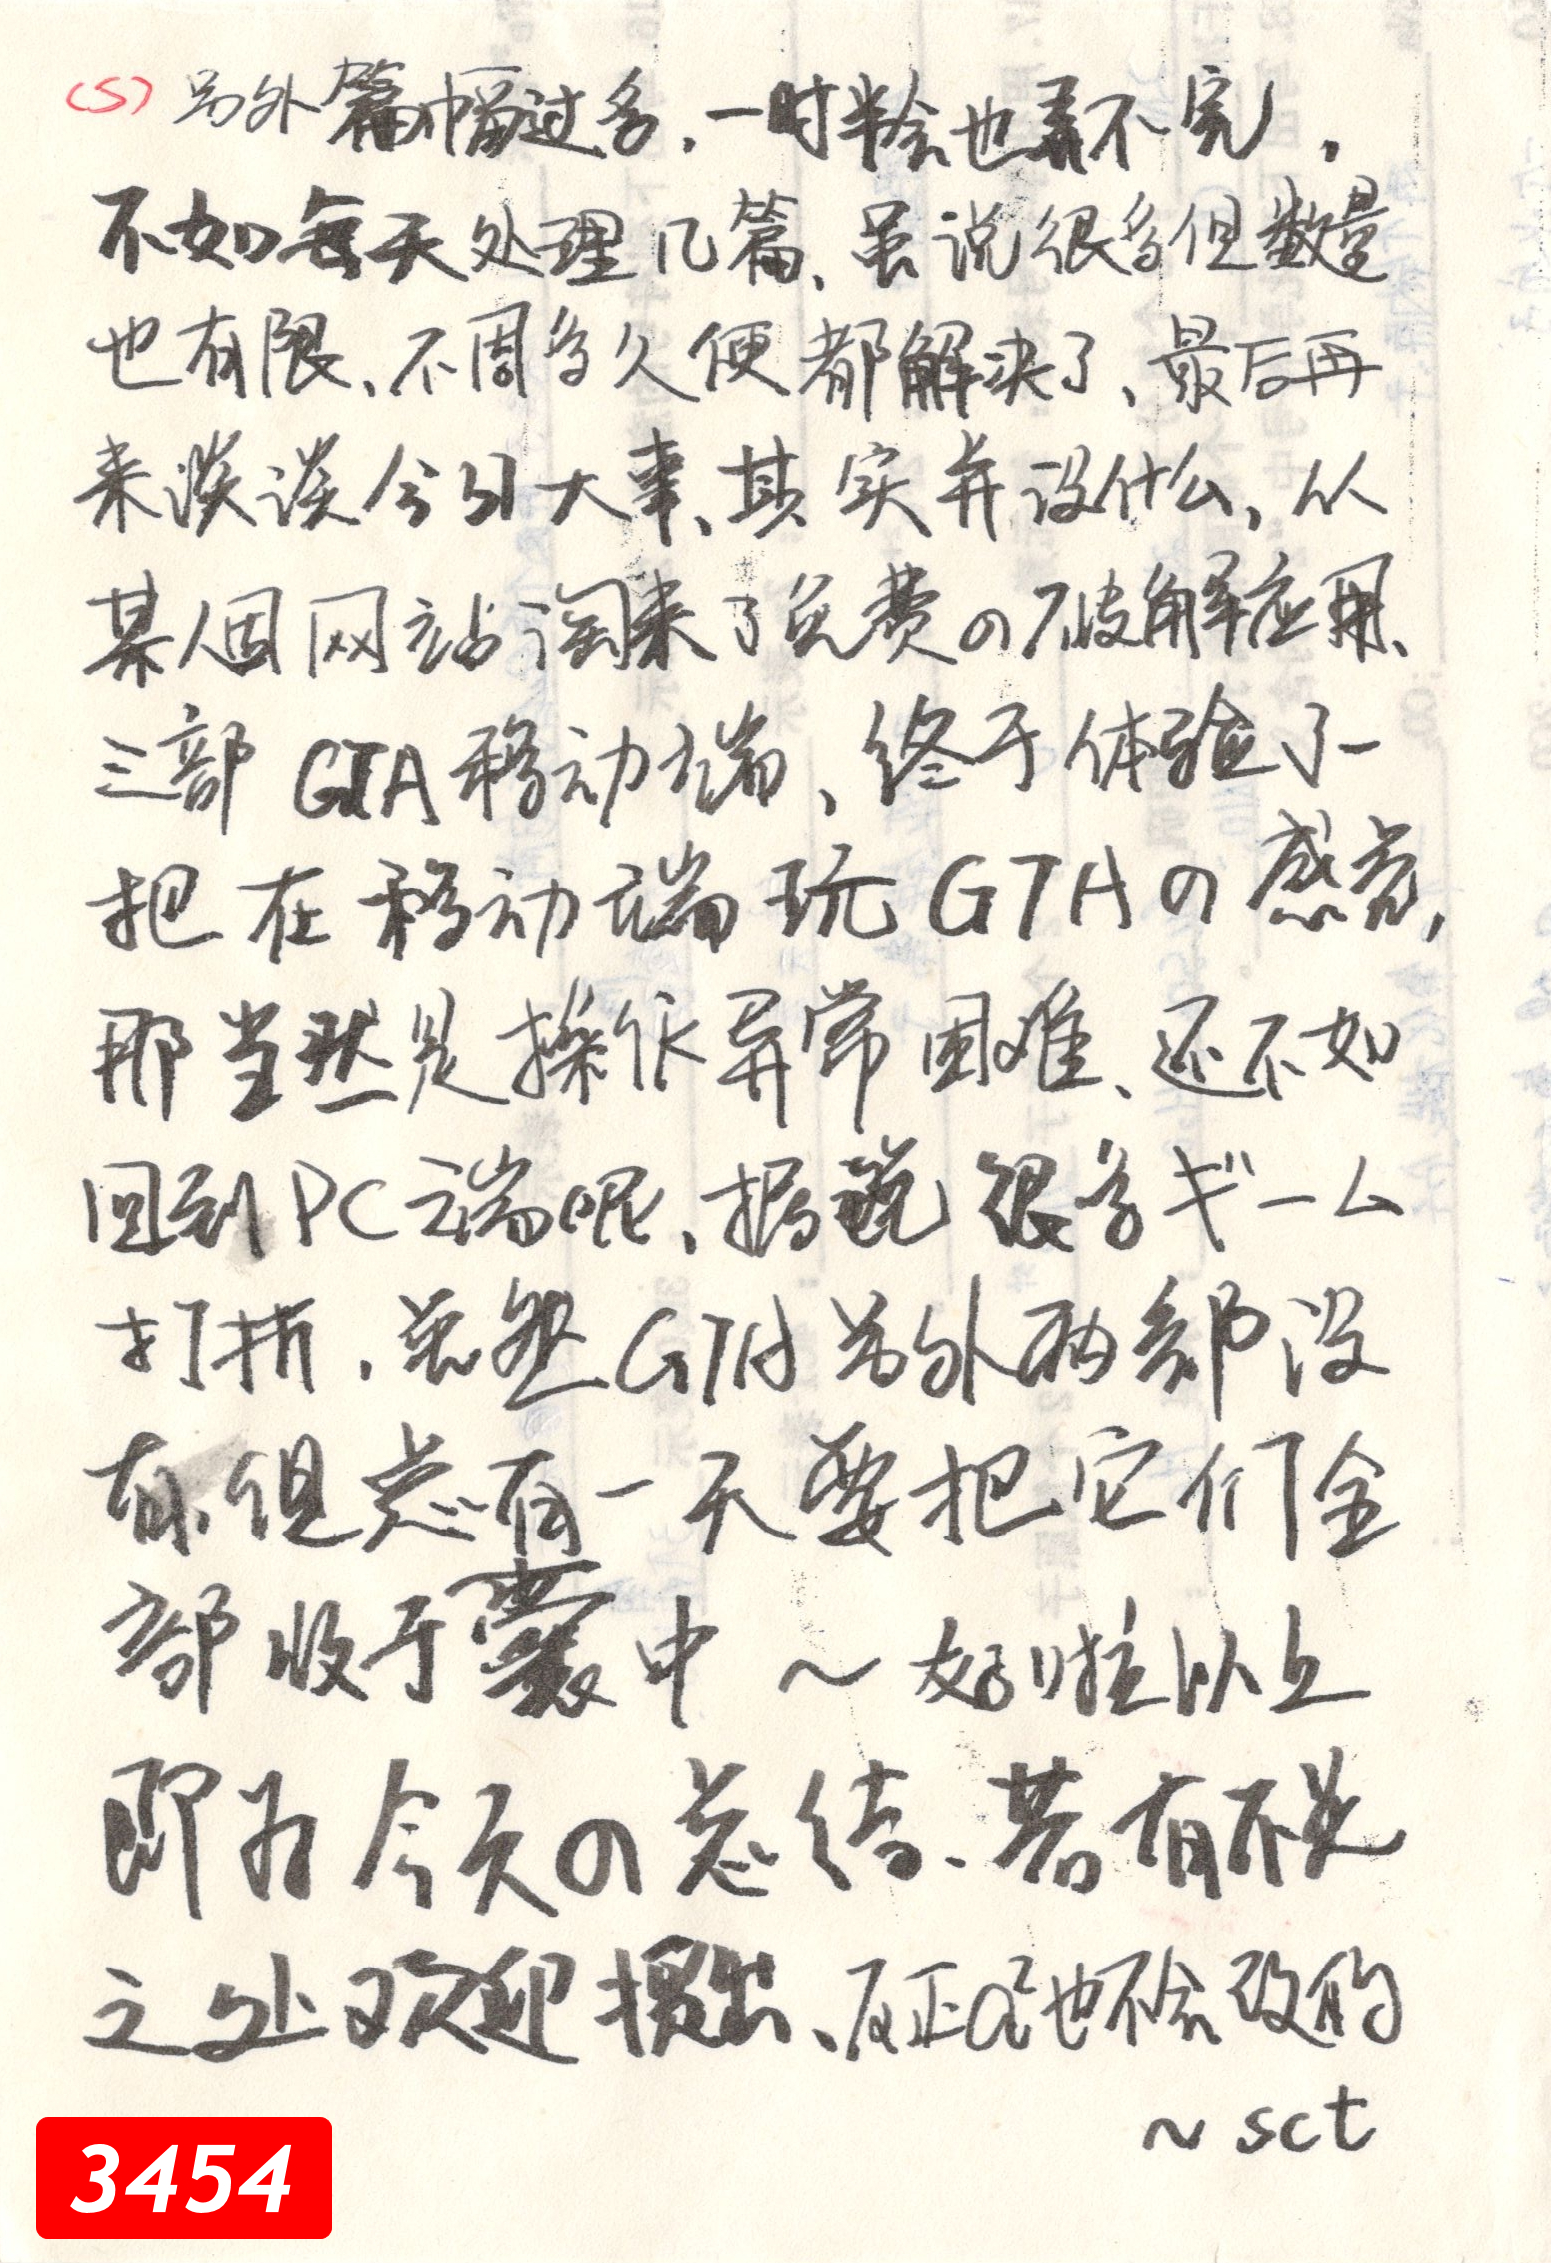 (5) 另外篇幅过多，一时半会也弄不完，
不如每天处理几篇、虽说很多但数量
也有限、不用多久便都解决了、最后再
来谈谈今日大事、其实并没什么，从
某個网站淘来了免费の破解应用、
三部 GTA移动端、终于体验了一
把在移动端玩GTAの感觉，
那当然是操作异常困难、还不如
回到PC端呢、据说很多ギーム
打折，虽然GTA另外两部没
有、但总有一天要把它们全
部收于囊中 ～ 好啦以上
即为今天の总结、若有不足
之处欢迎提出、反正也不会改的
～sct
3454